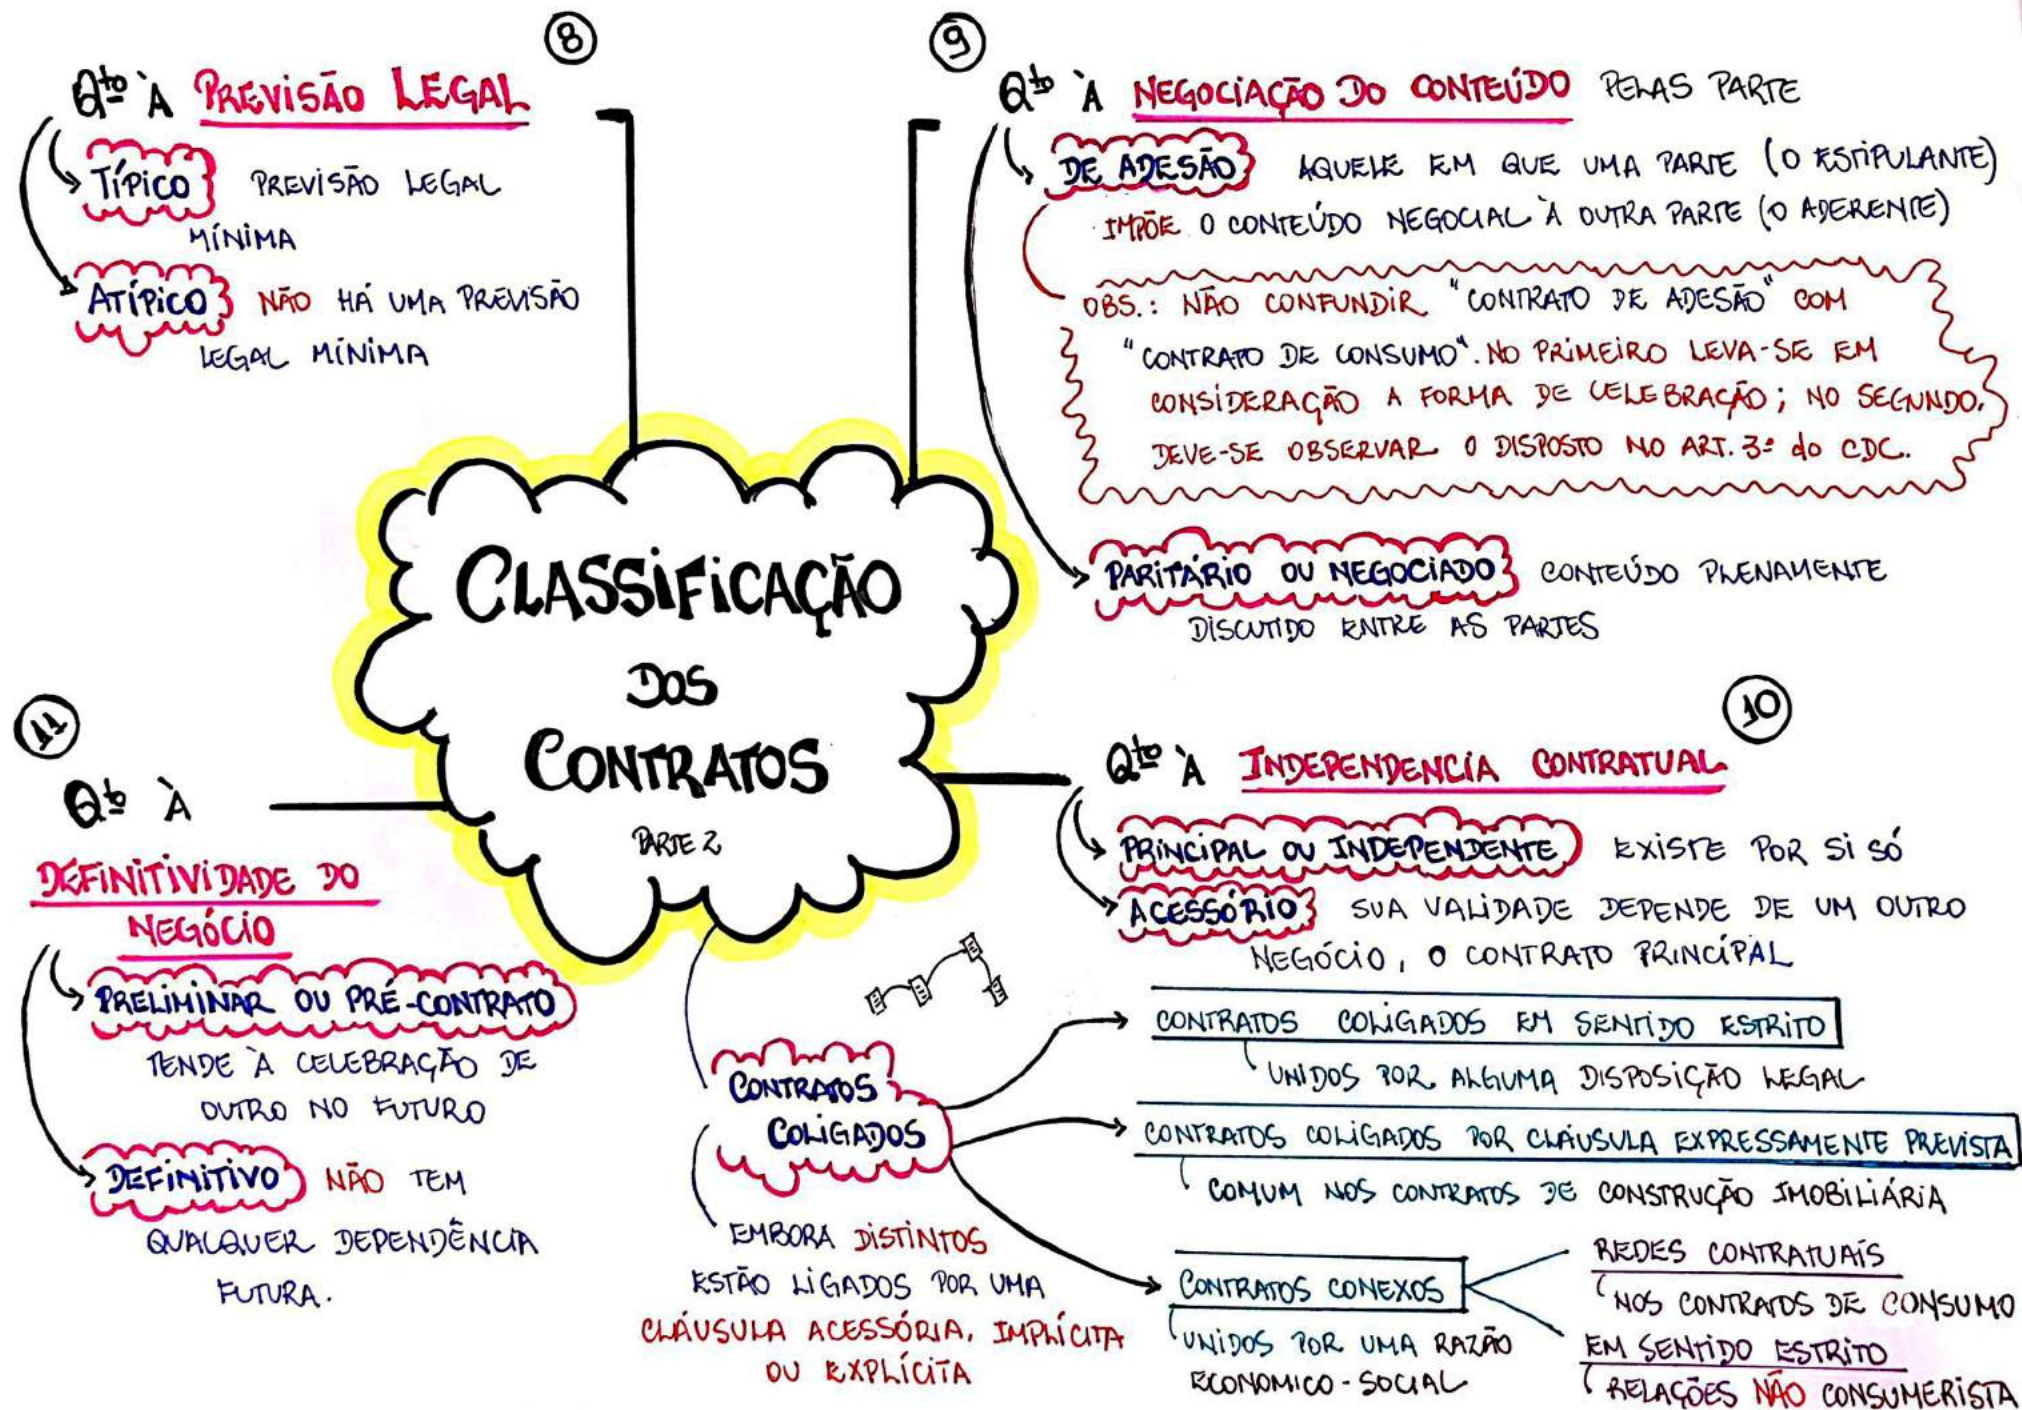 8
Qto À PREVISÃO LEGAL
TÍPICO PREVISÃO LEGAL
MÍNIMA
ATÍPICO NÃO HÁ UMA PREVISÃO
LEGAL MÍNIMA
9
Qto À NEGOCIAÇÃO DO CONTEÚDO PELAS PARTE
DE ADESÃO AQUELE EM QUE UMA PARTE (O ESTIPULANTE)
IMPÕE O CONTEÚDO NEGOCIAL À OUTRA PARTE (O ADERENTE)
OBS.: NÃO CONFUNDIR "CONTRATO DE ADESÃO" COM
"CONTRATO DE CONSUMO". NO PRIMEIRO LEVA-SE EM
CONSIDERAÇÃO A FORMA DE CELEBRAÇÃO; NO SEGUNDO,
DEVE-SE OBSERVAR O DISPOSTO NO ART. 3º do CDC.
PARITÁRIO OU NEGOCIADO CONTEÚDO PLENAMENTE
DISCUTIDO ENTRE AS PARTES
CLASSIFICAÇÃO
DOS
CONTRATOS
PARTE 2
10
Qto À INDEPENDENCIA CONTRATUAL
PRINCIPAL OU INDEPENDENTE EXISTE POR SI SÓ
ACESSÓRIO SUA VALIDADE DEPENDE DE UM OUTRO
NEGÓCIO, O CONTRATO PRINCÍPAL
11
Qto À
DEFINITIVIDADE DO
NEGÓCIO
PRELIMINAR OU PRÉ-CONTRATO
TENDE À CELEBRAÇÃO DE
OUTRO NO FUTURO
DEFINITIVO NÃO TEM
QUALQUER DEPENDÊNCIA
FUTURA.
CONTRATOS
COLIGADOS
EMBORA DISTINTOS
ESTÃO LIGADOS POR UMA
CLÁUSULA ACESSÓRIA, IMPLÍCITA
OU EXPLÍCITA
CONTRATOS COLIGADOS EM SENTIDO ESTRITO
UNIDOS POR ALGUMA DISPOSIÇÃO LEGAL
CONTRATOS COLIGADOS POR CLÁUSULA EXPRESSAMENTE PREVISTA
COMUM NOS CONTRATOS DE CONSTRUÇÃO IMOBILIÁRIA
CONTRATOS CONEXOS
UNIDOS POR UMA RAZÃO
ECONOMICO-SOCIAL
REDES CONTRATUAIS
NOS CONTRATOS DE CONSUMO
EM SENTIDO ESTRITO
RELAÇÕES NÃO CONSUMERISTA